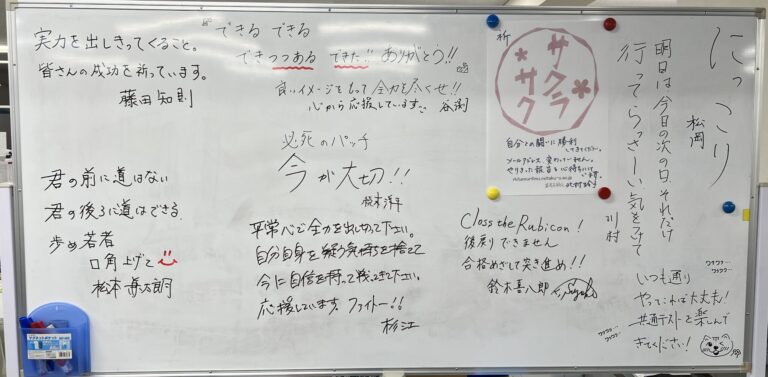 実力を出しきってくること。
皆さんの成功を祈っています。
藤田知則
君の前に道はない
君の後ろに道はできる
歩め若者
口角上げて
松本
できる できる
できつつある できた!! ありがとう!!
良いイメージをもって全力を尽くせ!!
心から応援しています。谷渕
必死のパッチ
今が大切!!
松本洋平
平常心で全力を出し切って下さい。
自分自身を疑う気持ちを捨てて
今に自信を持って戦ってきて下さい。
応援しています。ファイトー!!
杉江
祈
サクラ
サク
自分との闘いに勝利
してきてください。
メールアドレス 変わって一せん。
やりきった報告を心待ちにして
います。
Closs the Rubicon!
後戻りできません
合格めざして突き進め!!
鈴木喜八郎
にっこり
松岡
明日は今日の次の日 それだけ
行ってらっさーい 気をつけて
川村
ワクワク…
ワクワク…
いつも通り
やってこれば大丈夫!
共通テストを楽しんで
きてください!
ワクワク…
ワクワク…
マグネットポケット